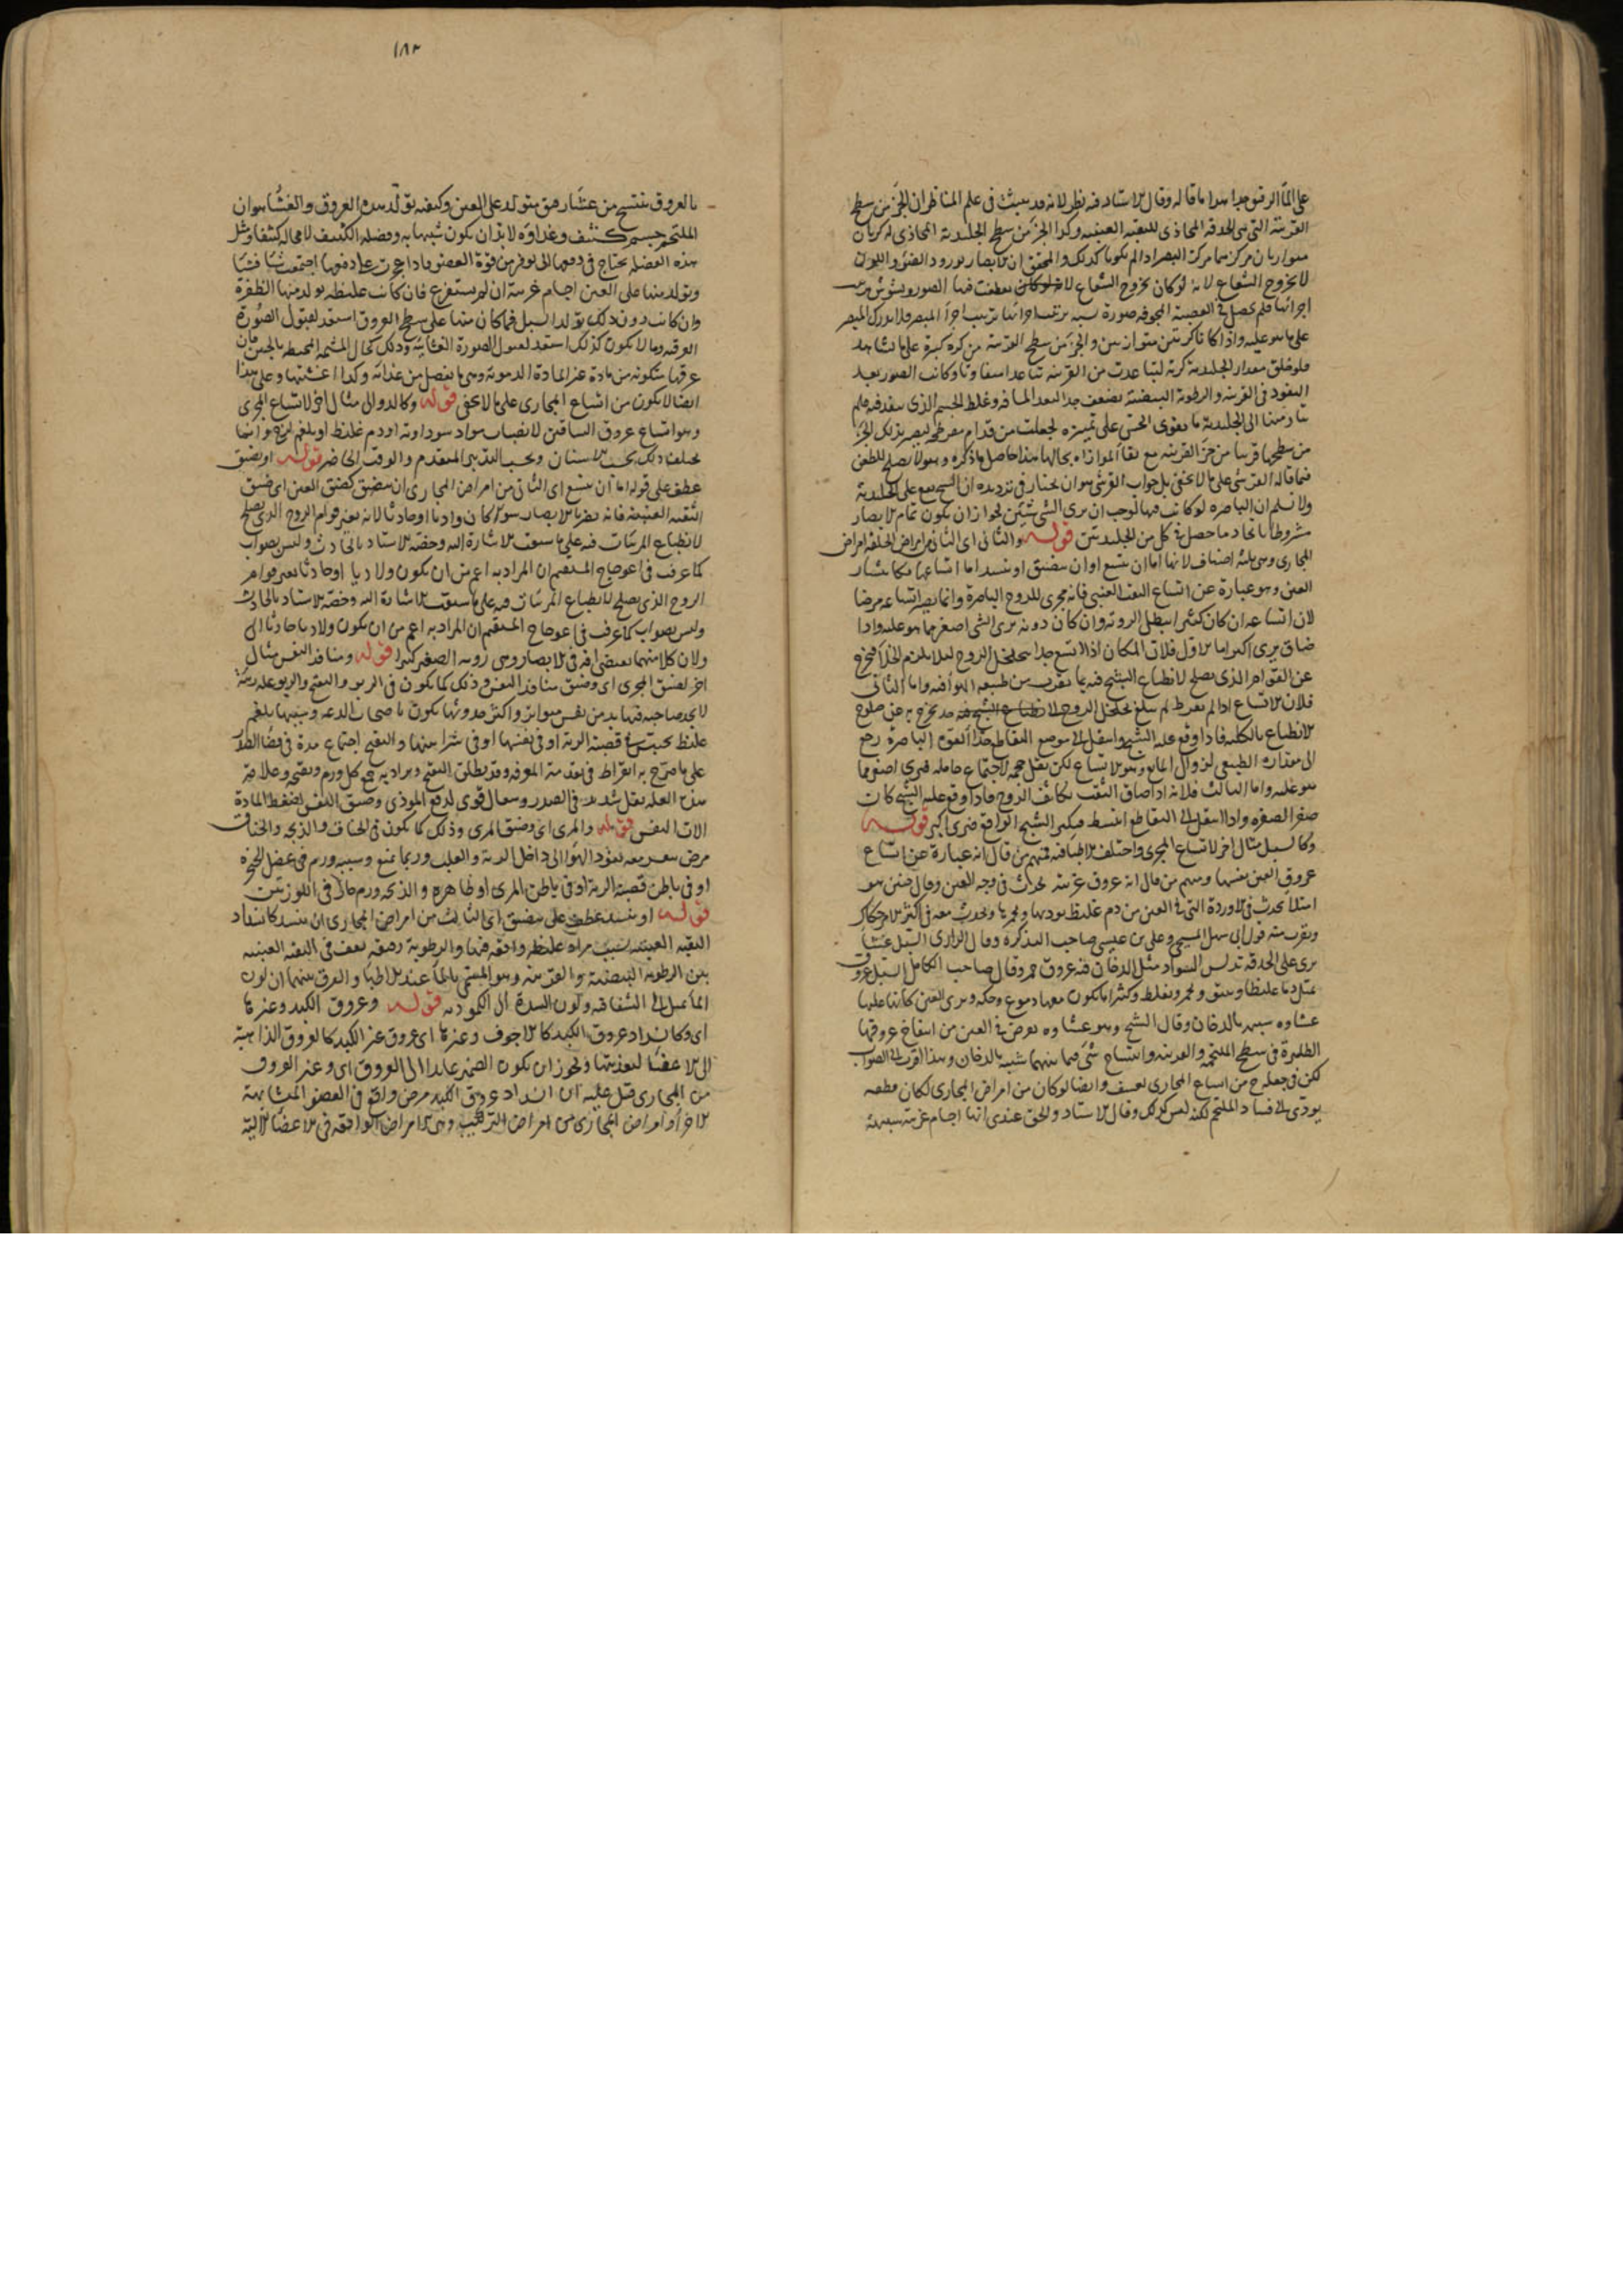 على الماء الرقيق جدا هذا ما قاله وقال الاستاد فيه نظر لانه قد يبين في علم المناظر ان الجزء من سطح
القرنية التي هي الحدقة المحاذي للثقبة العنبية وكذا الجزء من سطح الجليدية المحاذي له كريان
متوازيان مركزهما مركز البصر اذا لم يكونا كذلك والمحقق ان الابصار بورود الضوء واللون
لا بخروج الشعاع لانه لو كان بخروج الشعاع
اجزائها فلم يحصل في العصبة المجوفة صورة شبيه ترتيب اجزائها ترتيب اجزاء المبصر فلا يدرك المبصر
على ما هو عليه واذا كانا كرتين متوازيين والجزء من سطح القرنية من كرة كبيرة على ما نشاهد
فلو خلق مقدار الجليدية كرية لتباعدت من القرنية تباعدا متفاوتا وكانت الصور بعد
النفوذ في القرنية والرطوبة البيضية تضعف جدا لبعد المسافة وغلظ الجسم الذي تنفذ فيه فلم
تتاد منها الى الجليدية ما يقوى الحس على تمييزه فجعلت من قدام مفرطحة ليصير بذلك الجزء
من سطحها قريبا من جزء القرنية مع بقاء الموازاة بحالها هذا حاصل ما ذكره وهو لا يصلح للطعن
فيما قاله القرشي على ما لا يخفى بل جواب القرشي هو ان نختار في ترديده ان الشبح يقع على الجليدية
ولا نسلم ان الباصرة لو كانت فيها لوجب ان يرى الشيء شيئين لجواز ان يكون تمام الابصار
مشروطا باتحاد ما حصل في كل من الجليديتين قوله والثاني اي الثاني من امراض الخلقة امراض
المجاري وهي ثلثة اصناف لانها اما ان تتسع او ان تضيق او تنسد اما اتساعها فكانتشار
العين وهو عبارة عن اتساع الثقب العنبي فانه مجرى للروح الباصرة وانما يصير اتساعه مرضا
لان اتساعه ان كان كثيرا ابطل الرؤية وان كان دونه يرى الشيء اصغر مما هو عليه واذا
ضاق يرى اكبر اما الاول فلان المكان اذا اتسع جدا يتخلخل الروح لئلا يلزم الخلاء فيخرج
عن القوام الذي يصلح لانطباع الشبح فيه واما الثاني
فلان الاتساع اذا لم يفرط لم يبلغ تخلخل الروح
للانطباع بالكلية فاذا وقع عليه الشبح وانتقل الى موضع التقاطع القوة الباصرة رجع
الى مقداره الطبيعي لزوال المانع وهو الاتساع لكن يقل حجمه لاجتماع حامله فيرى اصغر مما
هو عليه واما الثالث فلانه اذا ضاق الثقب تكاثف الروح فاذا وقع عليه الشبح كان
صغيرا لصغره واذا انتقل الى التقاطع انبسط فيكبر الشبح الواقع فيرى اكبر قوله
وكالسبل مثال اخر لاتساع المجرى واختلف الاطباء فيه فمنهم من قال انه عبارة عن اتساع
عروق العين نفسها ومنهم من قال انه عروق غريبة تحدث في وجه العين وقال حنين هو
امتلاء يحدث في الاوردة التي في العين من دم غليظ ويحدث معه في اكثر الامر حكاك
ويقرب منه قول ابي سهل المسيحي وعلي بن عيسى صاحب التذكرة وقال الرازي السبل غشاء
يرى على الحدقة مثل الدخان فيه عروق حمر وقال صاحب الكامل السبل عروق
تمتلئ دما غليظا وتحمر وتغلظ وكثيرا ما يكون معها دموع وحكة وترى العين كانها عليها
غشاوة شبيه بالدخان وقال الشيخ وهو غشاوة تعرض في العين من انتفاخ عروقها
الظاهرة في سطح الملتحمة والقرنية وانتساج شيء فيما بينهما شبيه بالدخان وهذا اقرب الى الصواب
لكن في جعله من اتساع المجاري تعسف وايضا لو كان من امراض المجاري لكان قطعه
يؤدي الى فساد الملتحم لكنه ليس كذلك وقال الاستاد والحق عندي انها اجسام غريبة شبيهة
بالعروق تنتسج من غشاء رقيق متولد على العين وكيفية تولد هذه العروق والغشاء هو ان
الملتحم جسم كثيف وغذاؤه لا بد ان يكون شبيها به وفضلة الكثيف لا محالة كثيفة ومثل
هذه الفضلة يحتاج في دفعها الى توفر من قوة العضو فاذا عجزت عن دفعها اجتمعت شيئا فشيئا
وتولد منها على العين اجسام غريبة ان لم يستفرغ فان كانت غليظة تولد منها الظفرة
وان كانت دون ذلك تولد السبل فما كان منها على سطح العروق استعد لقبول الصورة
العرقية وما لا يكون كذلك استعد لقبول الصورة الغشائية وذلك كحال المشيمة المحيطة بالجنين فان
عروقها متكونة من مادة غير المادة الدموية وهي ما يفضل من غذائه وكذا اغشيتها وعلى هذا
ايضا لا يكون من اتساع المجاري على ما لا يخفى قوله وكالدوالي مثال اخر لاتساع المجرى
وهو اتساع عروق الساقين لانصباب مواد سوداوية او دم غليظ او بلغم لزج وانما
يختلف ذلك بحسب الاسنان وبحسب التدبير المتقدم والوقت الحاضر قوله او يضيق
عطف على قوله اما ان يتسع اي الثاني من امراض المجاري ان يضيق كضيق العين اي ضيق
الثقبة العنبية فانه يضر بالابصار سواء كان ولاديا او حادثا لانه يغير قوام الروح الذي يصلح
لانطباع المرئيات فيه على ما سبقت الاشارة اليه وخصه الاستاد بالحادث وليس بصواب
كما عرف في اعوجاج المستقيم ان المراد به اعم من ان يكون ولاديا او حادثا يغير قوام
الروح الذي يصلح لانطباع المرئيات فيه على ما سبقت الاشارة اليه وخصه الاستاد بالحادث
وليس بصواب كما عرف في اعوجاج المستقيم ان المراد به اعم من ان يكون ولاديا او حادثا
ولان كلا منهما يقتضي افة في الابصار وهي رؤية الصغير كبيرا قوله ومنافذ النفس مثال
اخر لضيق المجرى اي وضيق منافذ النفس وذلك كما يكون في الربو والتقيح والربو علة رئية
لا يجد صاحبه فيها بدا من نفس متواتر واكثر حدوثها يكون باصحاب الدعة وسببها بلغم
غليظ يحتبس في قصبة الرية او في نفسها او في شرايينها والتقيح اجتماع مدة في فضاء الصدر
على ما صرح به ابقراط في تقدمة المعرفة وقد يطلق التقيح ويراد به جمع كل ورم وتقيحه وعلامة
هذه العلة ثقل شديد في الصدر وسعال قوي لدفع المؤذي وضيق النفس لضغط المادة
الات النفس قوله والمري اي وضيق المري وذلك كما يكون في الخناق والذبحة والخناق
مرض يعسر معه نفوذ الهواء الى داخل الرية والقلب وربما يمنع وسببه ورم في عضل الحنجرة
او في باطن قصبة الرية او في باطن المري او ظاهره والذبحة ورم حار في اللوزتين
قوله او تنسد عطف على يضيق اي الثالث من امراض المجاري ان تنسد كانسداد
الثقبة العنبية بسبب مواد غليظة واقفة فيها والرطوبة رقيقة تقف في الثقبة العنبية
بين الرطوبة البيضية والقرنية وهو المسمى بالماء عند الاطباء والفرق بينهما ان لون
الماء يميل الى الشفافية ولون السدة الى الكمودة قوله وعروق الكبد وغيرها
اي وكانسداد عروق الكبد كالاجوف وغيرها اي عروق غير الكبد كالعروق الذاهبة
الى الاعضاء لتغذيتها ويجوز ان يكون الضمير عائدا الى العروق اي وغير العروق
من المجاري قيل عليه ان انسداد عروق الكبد مرض واقع في العضو المتشابهة
الاجزاء وامراض المجاري من امراض التركيب وهي الامراض الواقعة في الاعضاء الالية
١٨٣